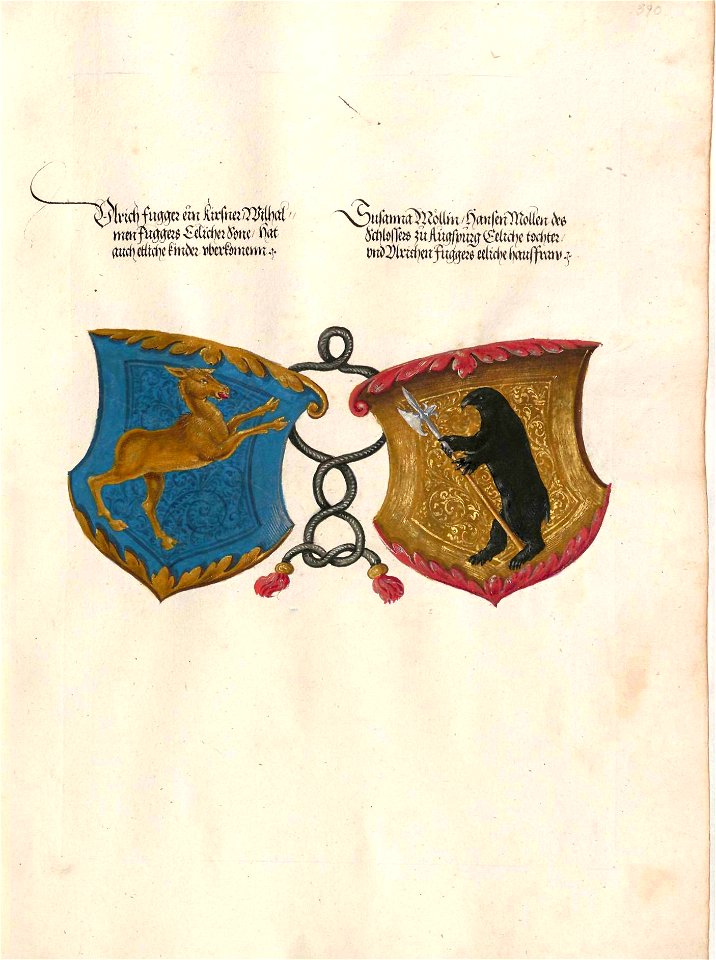 390
Ulrich fugger ein Kirsner, Wilhal„
men Fuggers Eelicher Sone, hat
auch etliche kinder vberkomenn
Susanna Mollin, Hansen Mollen des
Schlossers zu Augspurg Eeliche tochter,
vnd Vlrichen Fuggers eeliche hausfraw